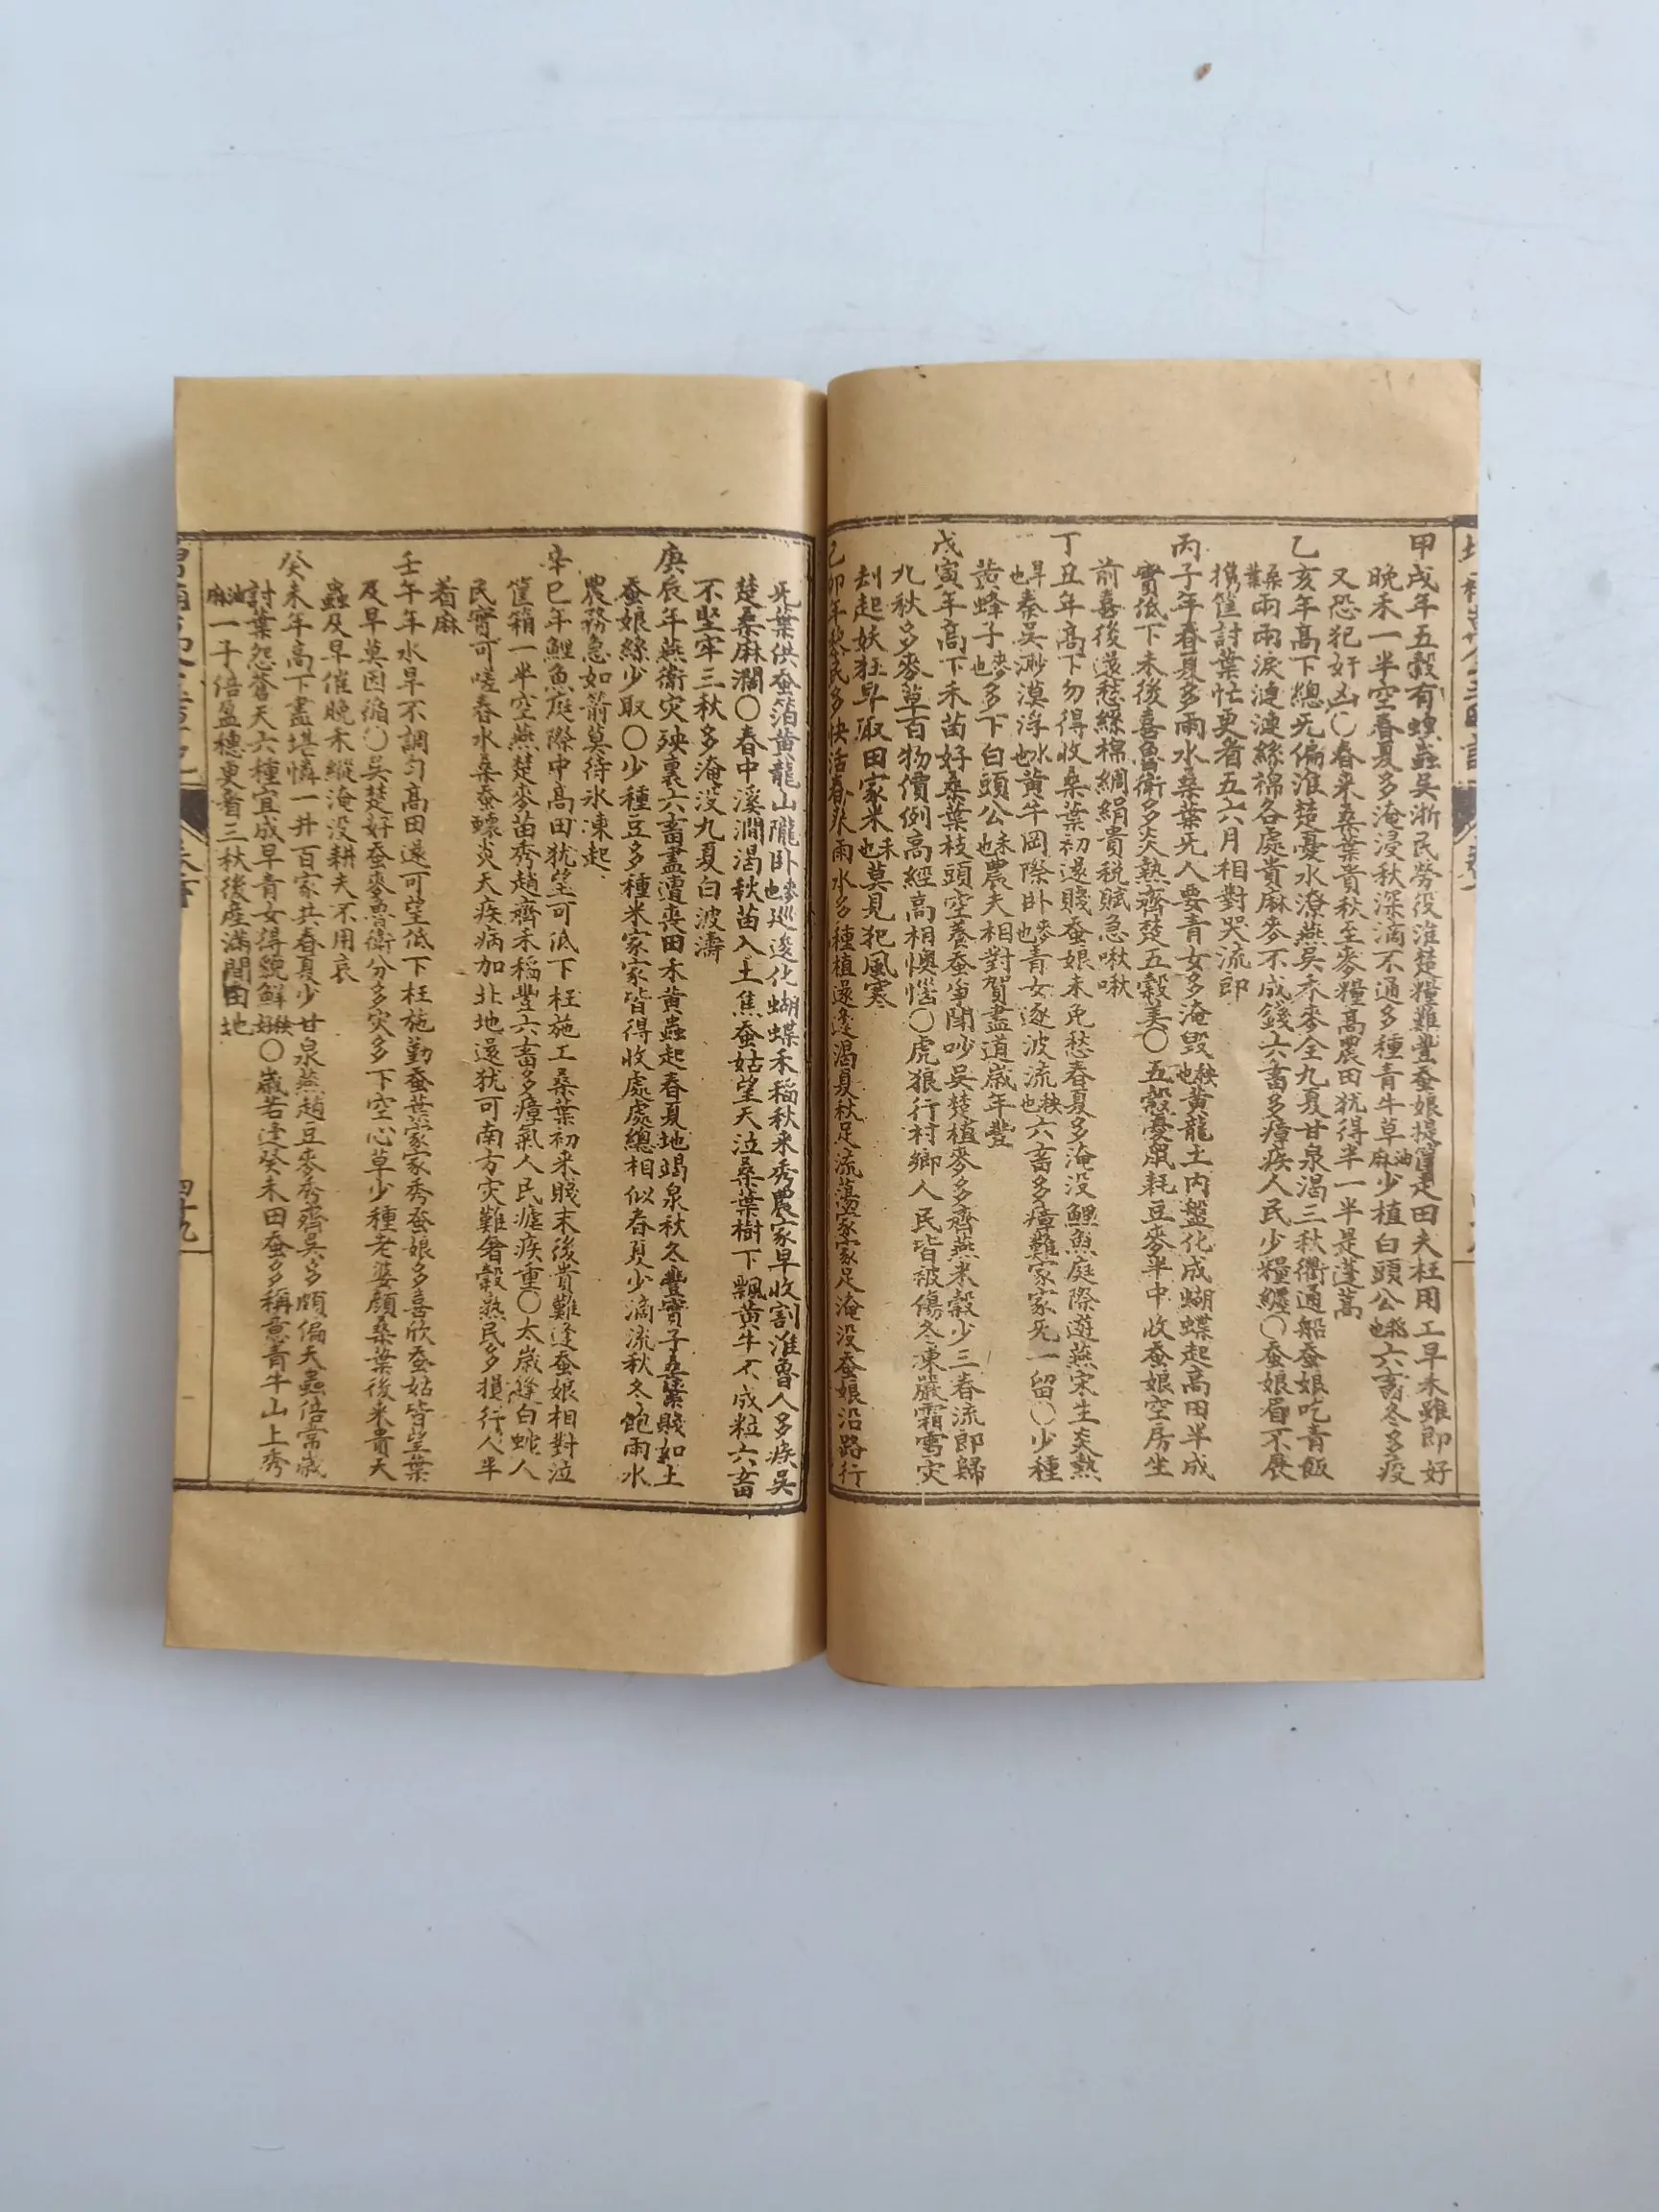 甲戌年五穀有蝗蟲吳浙民勞役淮楚糧難豐蚕娘提筐走田夫枉用工早禾雖即好
晚禾一半空春夏多淹浸秋深滴不通多種青牛草油麻少植白頭公也六畜冬多疫
又恐犯奸凶〇春来桑葉貴秋至麥糧高農田犹得半一半是蓬蒿
乙亥年高下總无偏淮楚憂水潦燕吳禾麥全九夏甘泉渴三秋衢通船蚕娘吃青飯
桑葉兩兩淚漣漣絲棉各處貴麻麥不成錢六畜多瘴疾人民少糧纏〇蚕娘眉不展
携筐討葉忙更看五六月相對哭流郎
丙子年春夏多雨水桑葉无人要青女多淹毀秧也黄龍土内盤化成蝴蝶起高田半成
實低下禾後喜魯衛多炎熱齊楚五穀美〇五穀憂鼠耗豆麥半中收蚕娘空房坐
前喜後還愁絲棉綢絹貴税賦急啾啾
丁丑年高下勿得收桑葉初還賤蚕娘未免愁春夏多淹没鯉魚庭際遊燕宋生炎熱
旱也秦吳渺漠浮水也黄牛岡際卧麥也青女逐波流秧也六畜多瘴難家家无一留〇少種
黄蜂子麥也多下白頭公禾也農夫相對賀盡道歲年豐
戊寅年高下禾苗好桑葉枝頭空養蚕爭鬧吵吳楚植麥多齊燕米穀少三春流郎歸
九秋多麥草百物價例高經高相懊惱〇虎狼行村鄉人民皆被傷冬凍嚴霜雪灾
刦起妖狂早取田家米禾也莫見犯風寒
己卯年黎民多快活春来雨水多種植還逢渴夏秋足流蕩家家足淹没蚕娘沿路行
无葉供蚕箔黄龍山隴卧麥也巡逡化蝴蝶禾稲秋来秀農家早收割淮魯人多疾吳
楚桑麻濶〇春中溪澗渴秋苗入土焦蚕姑望天泣桑葉樹下飄黄牛不成粒六畜
不堅牢三秋多淹没九夏白波濤
庚辰年燕衛灾殃裏六畜盡遭丧田禾黄蟲起春夏地竭泉秋冬豐實子桑葉賤如土
蚕娘絲少取〇少種豆多種米家家皆得收處處總相似春夏少滴流秋冬飽雨水
農務急如箭莫待氷凍起
辛巳年鯉魚庭際中高田犹望可低下枉施工桑葉初来賤末後貴難逢蚕娘相對泣
筐箱一半空燕楚麥苗秀趙齊禾稲豐六畜多瘴氣人民瘧疾重〇太歲逢白蛇人
民實可嗟春水桑蚕蠓炎天疾病加北地還犹可南方灾難奢穀熟民多損行人半
着麻
壬午年水旱不調匀高田還可望低下枉施勤蚕葉家家秀蚕娘多喜欣蚕姑皆望葉
及早莫因循〇吳楚好蚕麥魯衛分多灾多下空心草少種老婆顔桑葉後米貴天
蟲及早催晚禾縱淹没耕夫不用哀
癸未年高下盡堪憐一井百家共春夏少甘泉燕趙豆麥秀齊吳多頗偏天蟲倍常歲
討葉怨蒼天六種宜成早青女得貌鮮秧好〇歲若逢癸未田蚕多稱意青牛山上秀
油麻一子倍盈穗更看三秋後産滿間田地
四十九